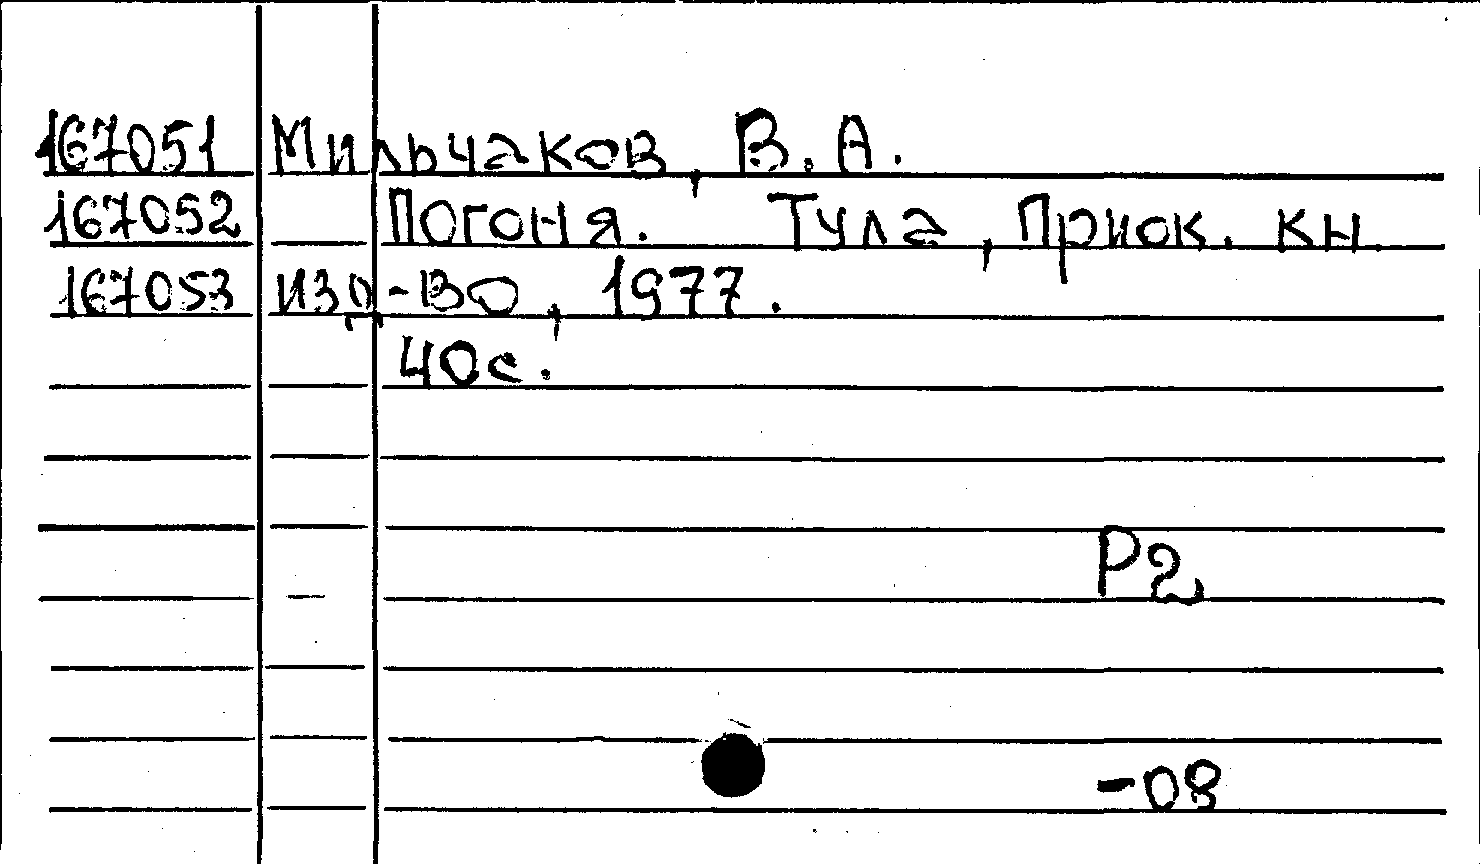 167051 Мильчаков, В. А.
167052 Погоня. Тула, Приок. кн.
167053 изд-во, 1977.
40с.
Р2
-08